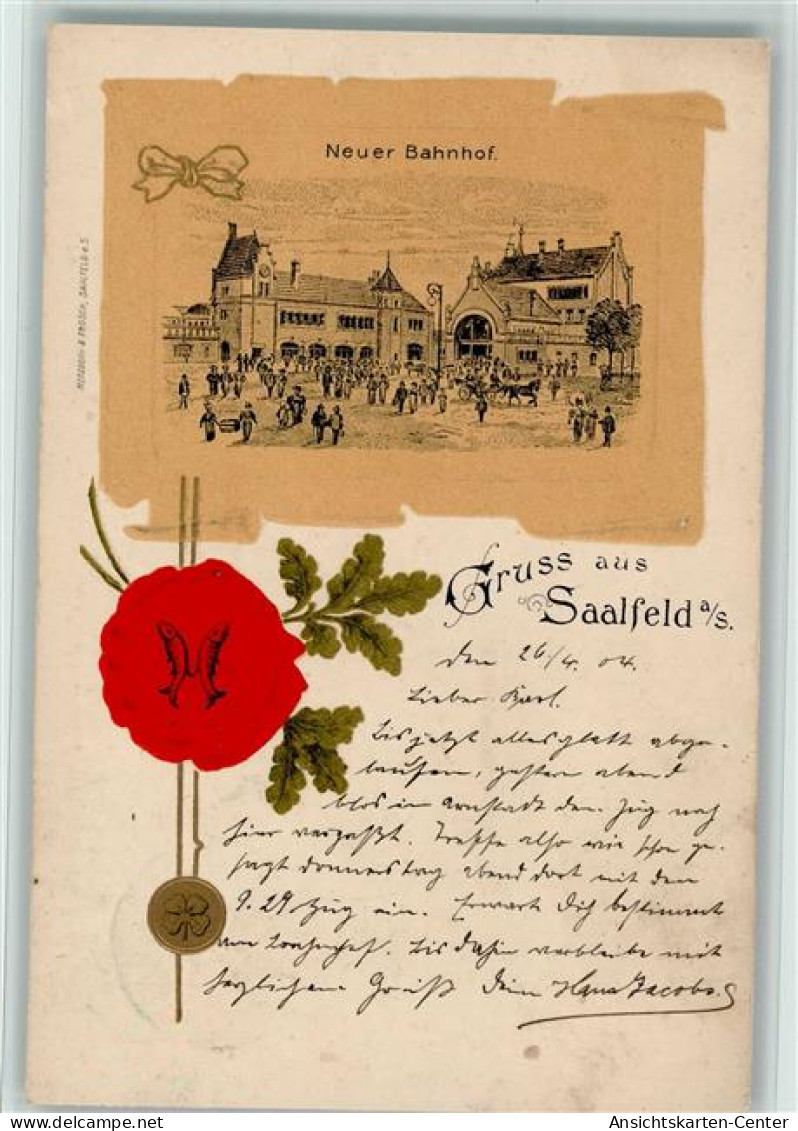 Neuer Bahnhof.
Gruss aus
Saalfeld a/s.
den 26/4. 04.
Lieber Karl.
Bis jetzt alles glatt abge-
laufen, gestern abend
blos in Arnstadt den Zug nach
hier verpaßt. Treffe also wie schon ge-
sagt Donnerstag abend dort mit dem
9.29 Zug ein. Erwarte Dich bestimmt
am Bahnhof. Bis dahin verbleibe mit
herzlichem Gruß Dein Hans Jacobs.
& FROSCH, SAALFELD a.S.
Ansichtskarten-Center